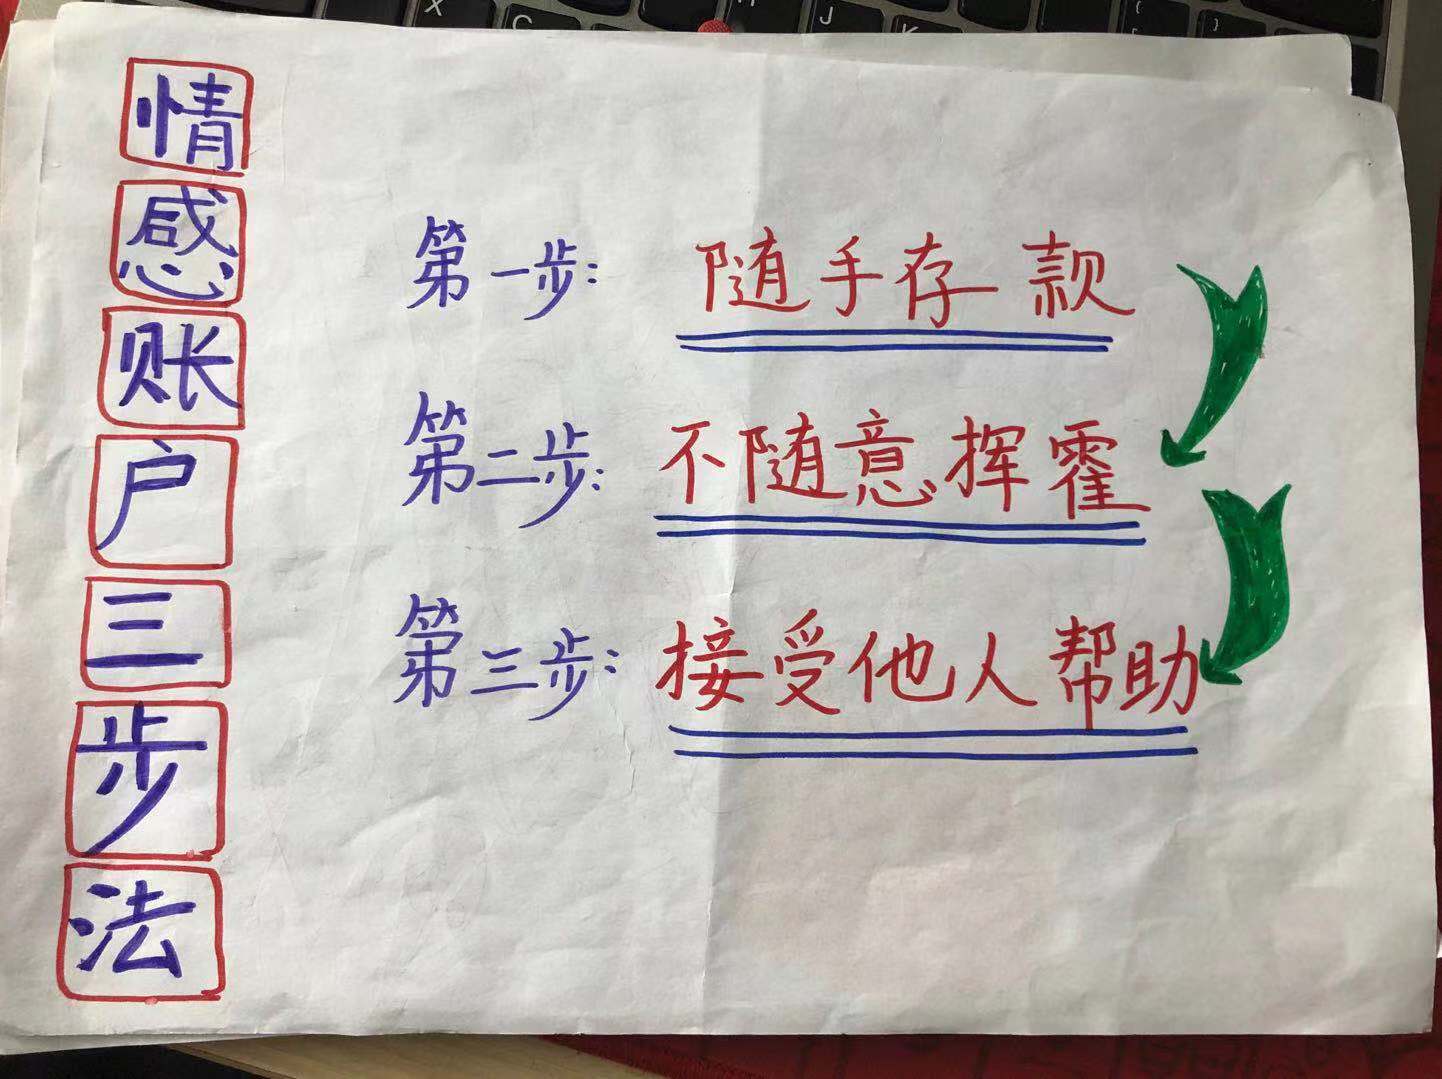 情感账户三步法
第一步: 随手存款
第二步: 不随意挥霍
第三步: 接受他人帮助
X C J K